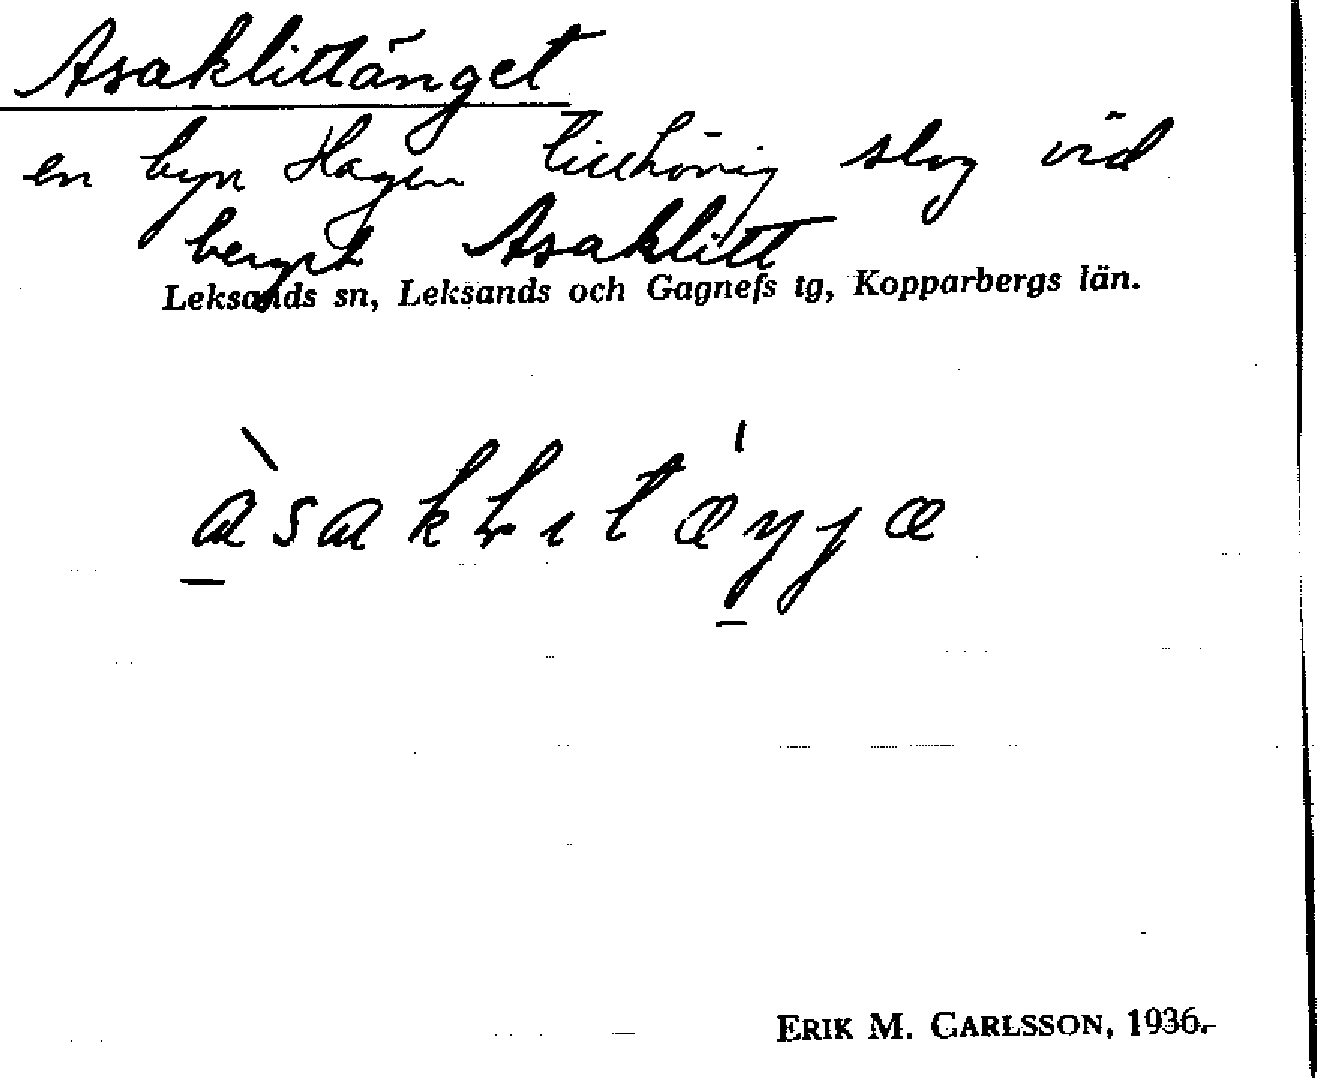 Asaklittänget
en byn Hagen tillhörig slog vid
berget Asaklitt
Leksands sn, Leksands och Gagnefs tg, Kopparbergs län.
ERIK M. CARLSSON, 1936.